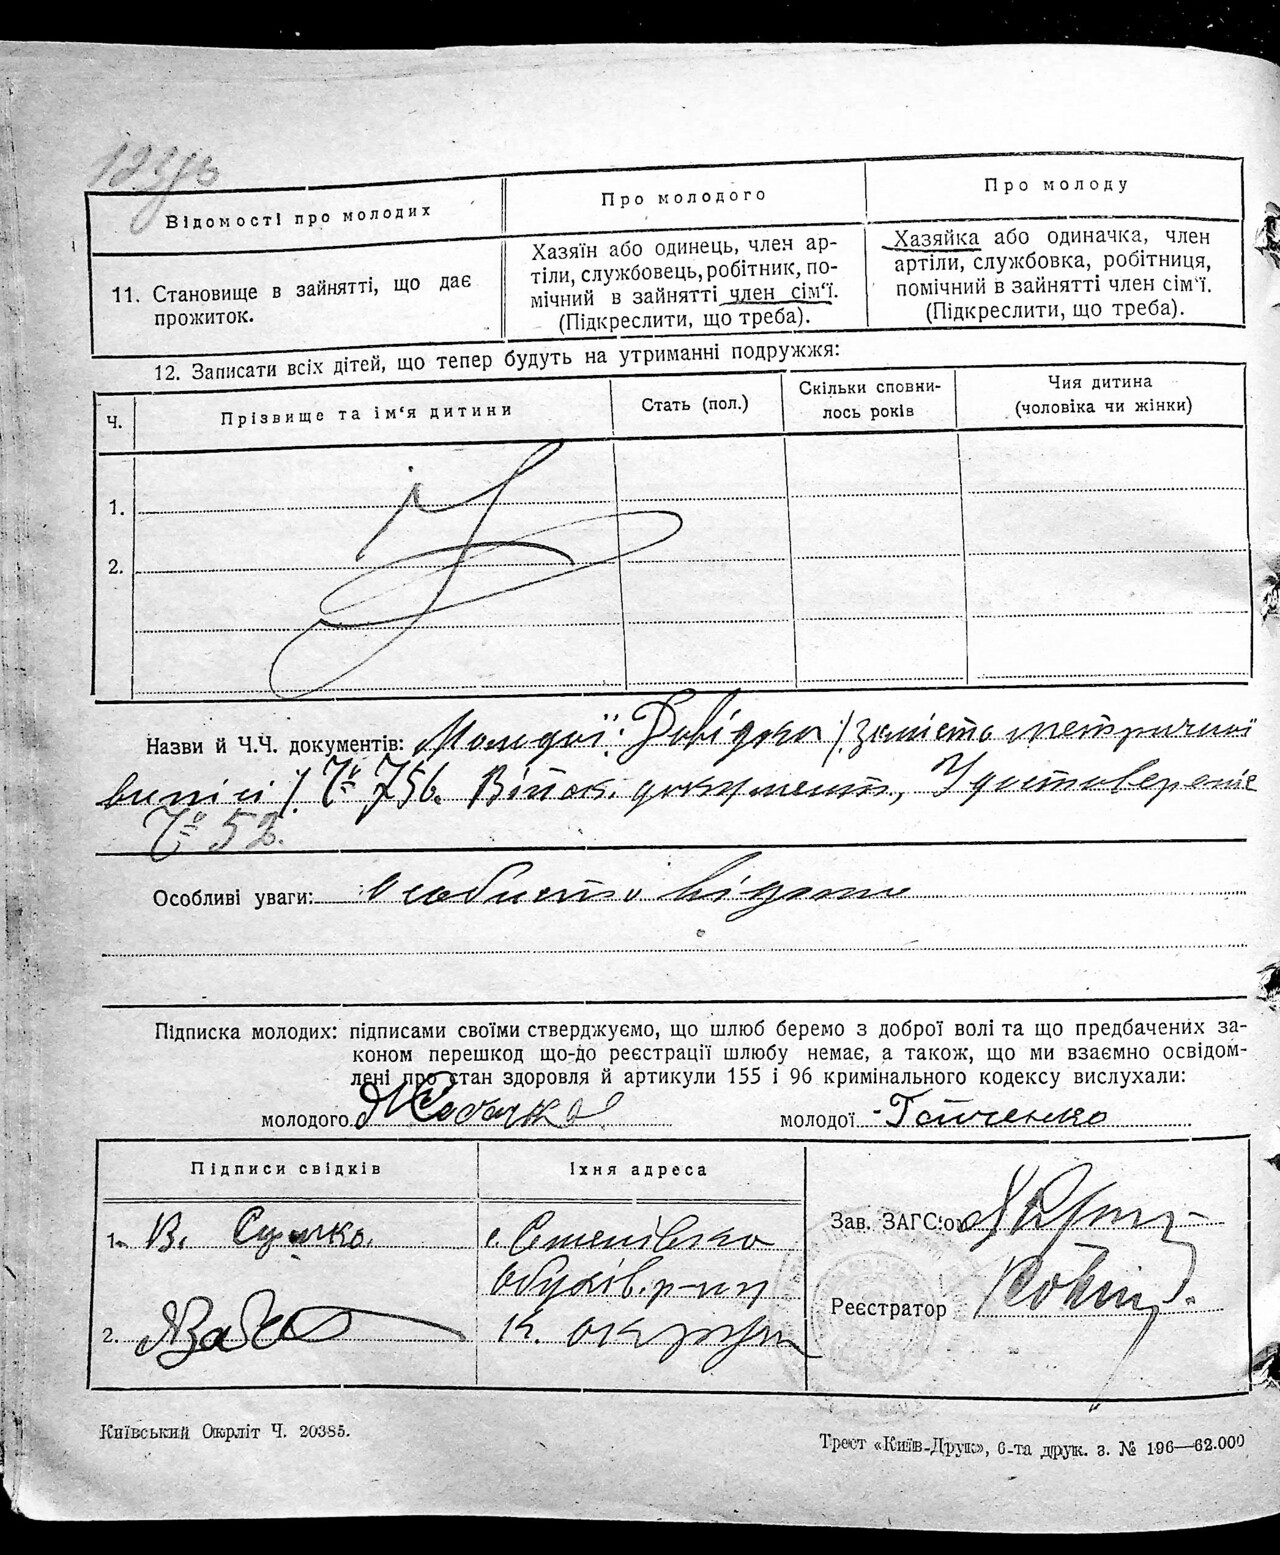 123
Відомості про молодих
Про молодого
Про молоду
11. Становище в зайнятті, що дає
прожиток.
Хазяїн або одинець, член ар-
тіли, службовець, робітник, по-
мічний в зайнятті член сім'ї.
(Підкреслити, що треба).
Хазяйка або одиначка, член
артіли, службовка, робітниця,
помічний в зайнятті член сім'ї.
(Підкреслити, що треба).
12. Записати всіх дітей, що тепер будуть на утриманні подружжя:
Ч.
Прізвище та ім'я дитини
Стать (пол.)
Скільки сповни-
лось років
Чия дитина
(чоловіка чи жінки)
1.
2.
Назви й Ч.Ч. документів: Молодої: Довідка /замість метричної
виписі/ Ч. 756. Військ. документ, Удостоверение
Ч. 52.
Особливі уваги: Особисто відомі
Підписка молодих: підписами своїми стверджуємо, що шлюб беремо з доброї волі та що предбачених за-
коном перешкод що-до реєстрації шлюбу немає, а також, що ми взаємно освідом-
лені про стан здоровля й артикули 155 і 96 кримінального кодексу вислухали:
молодого
молодої
Підписи свідків
Їхня адреса
1. В.
с. Семенівка
Обухів. р-ну
2.
К. округи
Зав. ЗАГС'ом
Реєстратор
Київський Окрліт Ч. 20385.
Трест «Київ-Друк», 6-та друк. з. № 196—62.000